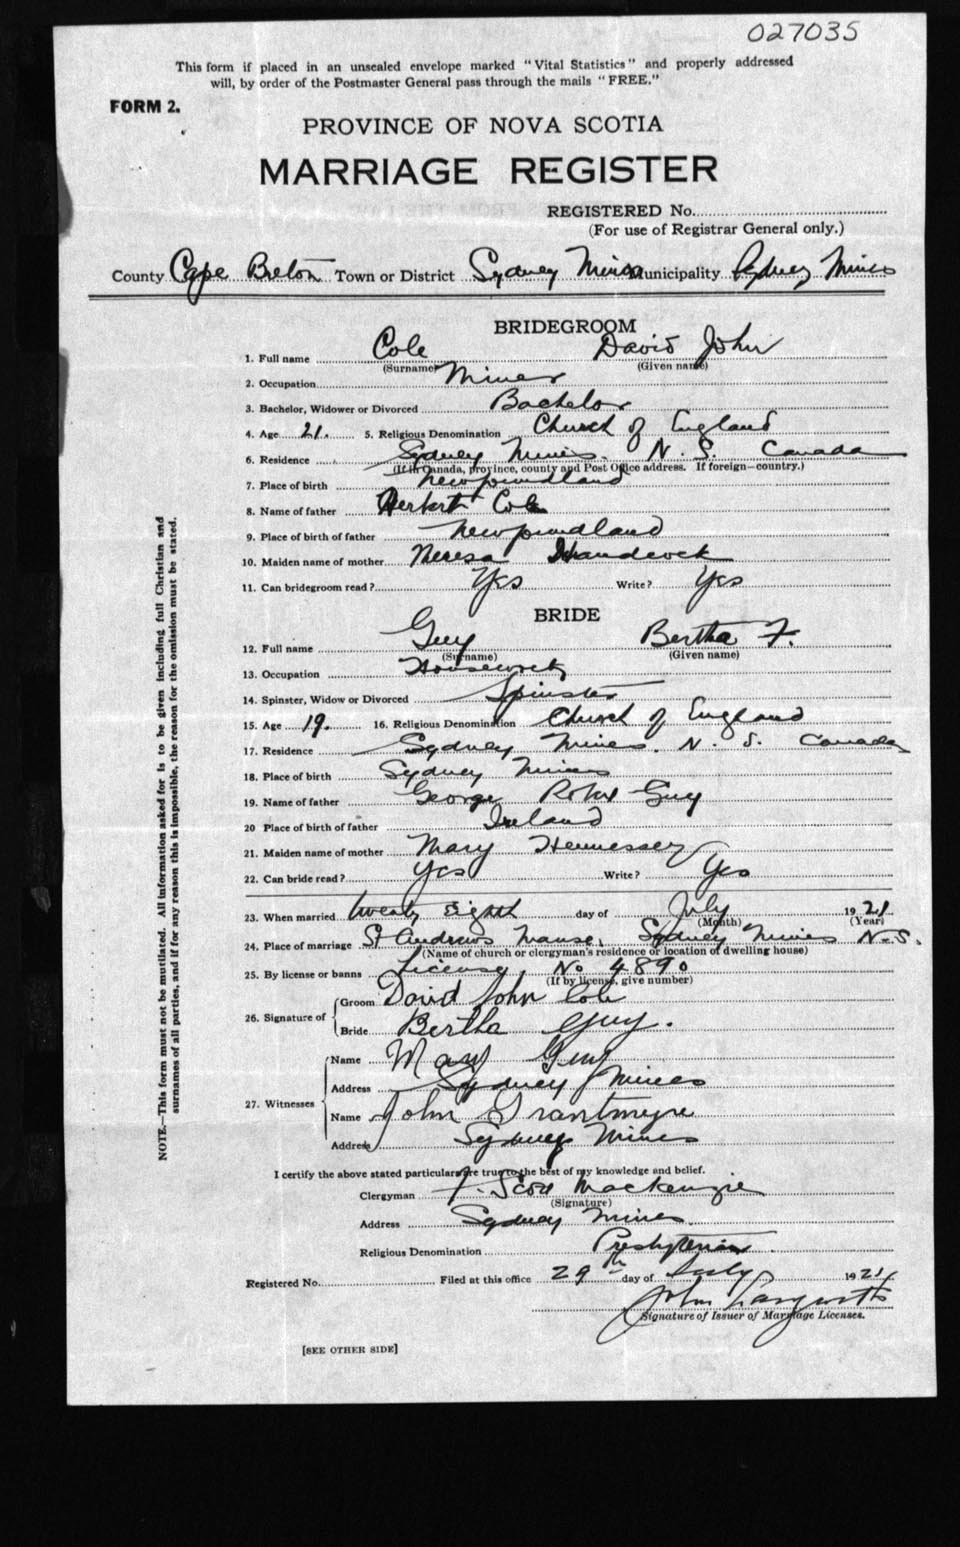 027035
This form if placed in an unsealed envelope marked "Vital Statistics" and properly addressed
will, by order of the Postmaster General pass through the mails "FREE."
FORM 2.
PROVINCE OF NOVA SCOTIA
MARRIAGE REGISTER
REGISTERED No.
(For use of Registrar General only.)
County Cape Breton Town or District Sydney Mines Municipality Sydney Mines
BRIDEGROOM
1. Full name Cole David John
(Surname) (Given name)
2. Occupation Miner
3. Bachelor, Widower or Divorced Bachelor
4. Age 21. 5. Religious Denomination Church of England
6. Residence Sydney Mines. N. S. Canada
(If in Canada, province, county and Post Office address. If foreign—country.)
7. Place of birth Newfoundland
8. Name of father Herbert Cole
9. Place of birth of father Newfoundland
10. Maiden name of mother Handcock
11. Can bridegroom read? Yes Write? Yes
BRIDE
12. Full name Guy Bertha F.
(Surname) (Given name)
13. Occupation Housework
14. Spinster, Widow or Divorced Spinster
15. Age 19. 16. Religious Denomination Church of England
17. Residence Sydney Mines. N. S. Canada
18. Place of birth Sydney Mines
19. Name of father George Robt Guy
20 Place of birth of father Ireland
21. Maiden name of mother Mary Hennessey
22. Can bride read? Yes Write? Yes
23. When married twenty eighth day of July 1921
(Month) (Year)
24. Place of marriage St Andrews Manse, Sydney Mines N.S.
(Name of church or clergyman's residence or location of dwelling house)
25. By license or banns License, No 4890
(If by license, give number)
26. Signature of Groom David John Cole
Bride Bertha Guy.
27. Witnesses Name Mary Guy
Address Sydney Mines
Name John Grantmyre
Address Sydney Mines
I certify the above stated particulars are true to the best of my knowledge and belief.
Clergyman F. Scott Mackenzie
(Signature)
Address Sydney Mines.
Religious Denomination Presbyterian.
Registered No. Filed at this office 29th day of July 1921
John
Signature of Issuer of Marriage Licenses.
[SEE OTHER SIDE]
NOTE.—This form must not be mutilated. All information asked for is to be given including full Christian and
surnames of all parties, and if for any reason this is impossible, the reason for the omission must be stated.